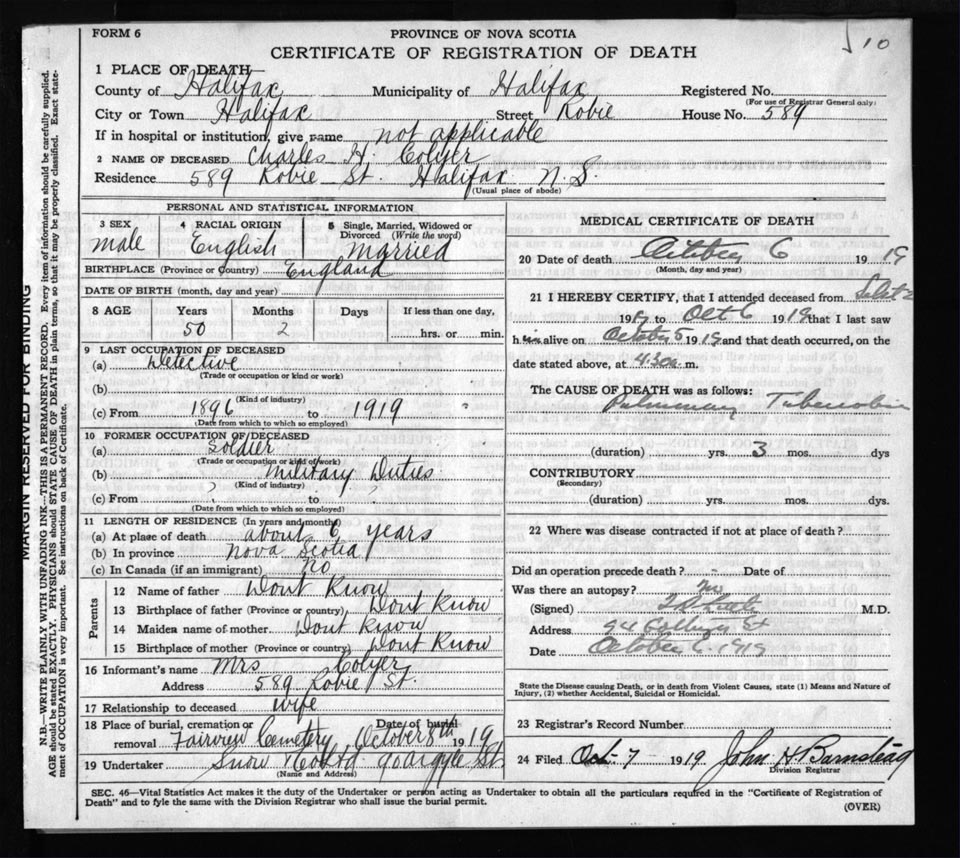 FORM 6
PROVINCE OF NOVA SCOTIA
CERTIFICATE OF REGISTRATION OF DEATH
10
1 PLACE OF DEATH
County of Halifax Municipality of Halifax Registered No.
(For use of Registrar General only)
City or Town Halifax Street Robie House No. 589
If in hospital or institution, give name not applicable
2 NAME OF DECEASED Charles H. Colyer
Residence 589 Robie St. Halifax N.S.
(Usual place of abode)
PERSONAL AND STATISTICAL INFORMATION
3 SEX 4 RACIAL ORIGIN 5 Single, Married, Widowed or Divorced (Write the word)
male English Married
BIRTHPLACE (Province or Country) England
DATE OF BIRTH (month, day and year)
8 AGE Years Months Days If less than one day,
50 2 hrs. or min.
9 LAST OCCUPATION OF DECEASED
(a) Detective
(Trade or occupation or kind or work)
(b)
(Kind of industry)
(c) From 1896 to 1919
(Date from which to which so employed)
10 FORMER OCCUPATION OF DECEASED
(a) Soldier
(Trade or occupation or kind of work)
(b) Military Duties
(Kind of industry)
(c) From ? to
(Date from which to which so employed)
11 LENGTH OF RESIDENCE (In years and months)
(a) At place of death about 6 years
(b) In province Nova Scotia
(c) In Canada (if an immigrant) no
Parents
12 Name of father Dont Know
13 Birthplace of father (Province or country) Dont Know
14 Maiden name of mother Dont Know
15 Birthplace of mother (Province or country) Dont Know
16 Informant's name Mrs Colyer
Address 589 Robie St.
17 Relationship to deceased wife
18 Place of burial, cremation or removal Fairview Cemetery Date of burial October 8th 1919
19 Undertaker Snow & Co Ltd 90 Argyle St
(Name and Address)
MEDICAL CERTIFICATE OF DEATH
20 Date of death October 6 1919
(Month, day and year)
21 I HEREBY CERTIFY, that I attended deceased from
1919 to Oct 6 1919 that I last saw
him alive on October 5 1919 and that death occurred, on the
date stated above, at 4.30 a. m.
The CAUSE OF DEATH was as follows:
Pulmonary Tuberculosis
(duration) yrs. 3 mos. dys
CONTRIBUTORY
(Secondary)
(duration) yrs. mos. dys.
22 Where was disease contracted if not at place of death?
Did an operation precede death? - Date of
Was there an autopsy? no
(Signed) M.D.
Address St
Date October 6. 1919
State the Disease causing Death, or in death from Violent Causes, state (1) Means and Nature of
Injury, (2) whether Accidental, Suicidal or Homicidal.
23 Registrar's Record Number
24 Filed Oct 7 1919 John H Barnstead
Division Registrar
SEC. 46—Vital Statistics Act makes it the duty of the Undertaker or person acting as Undertaker to obtain all the particulars required in the "Certificate of Registration of
Death" and to fyle the same with the Division Registrar who shall issue the burial permit.
(OVER)
MARGIN RESERVED FOR BINDING
N.B.—WRITE PLAINLY WITH UNFADING INK—THIS IS A PERMANENT RECORD. Every item of information should be carefully supplied.
AGE should be stated EXACTLY. PHYSICIANS should STATE CAUSE OF DEATH in plain terms, so that it may be properly classified. Exact state-
ment of OCCUPATION is very important. See instructions on back of Certificate.